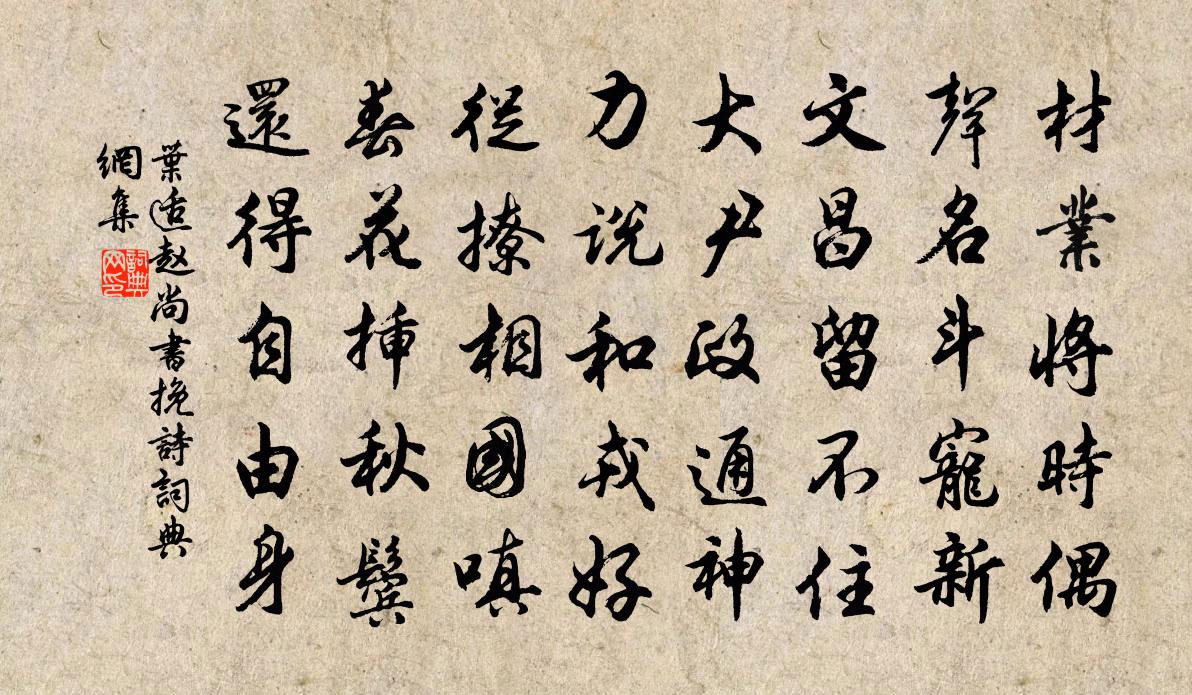 材業將時偶
聲名斗寵新
文昌留不住
大尹政通神
力說和戎好
從撩相國嗔
春花揷秋鬢
還得自由身
葉适赵尚書挽詩詞典
網集
詞典网印